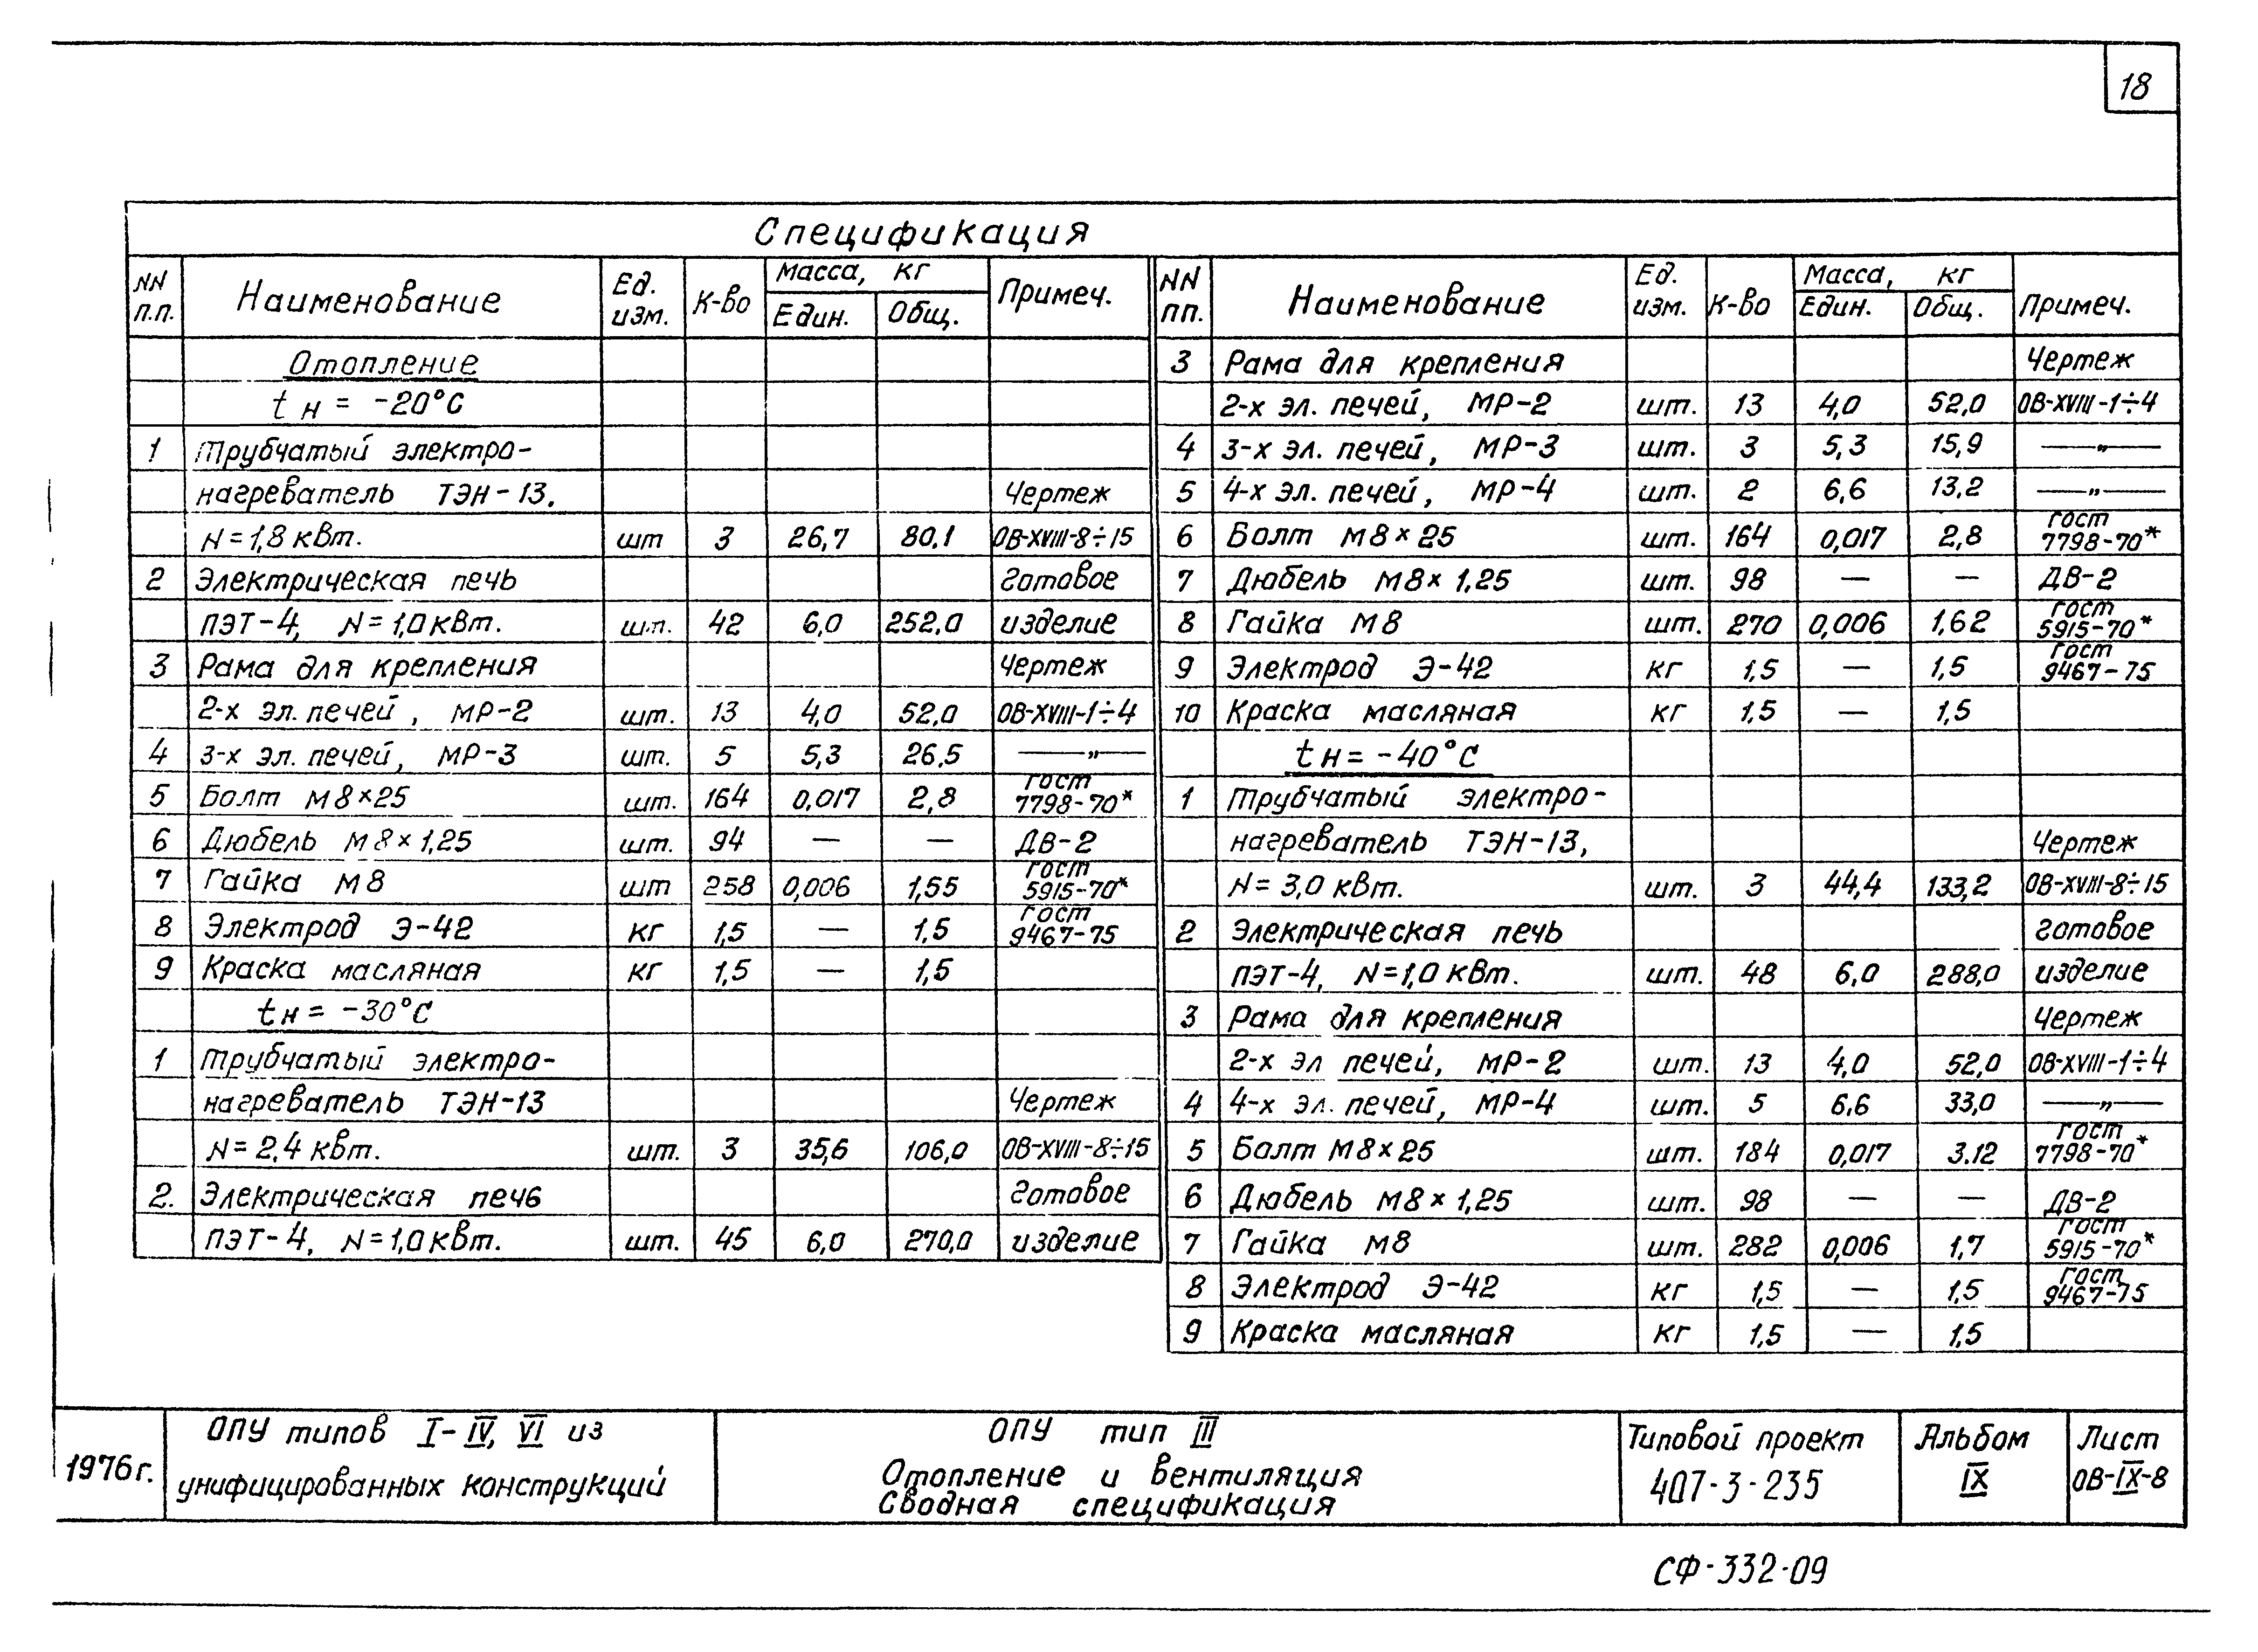 18
Спецификация
NN п.п. Наименование Ед. изм. К-во Масса, кг Един. Общ. Примеч.
Отопление
tн = -20°С
1 Трубчатый электро-
нагреватель ТЭН-13. Чертеж
N=1,8 кВт. шт 3 26,7 80,1 ОВ-XVIII-8÷15
2 Электрическая печь готовое
ПЭТ-4, N=1,0 кВт. шт. 42 6,0 252,0 изделие
3 Рама для крепления Чертеж
2-х эл. печей, МР-2 шт. 13 4,0 52,0 ОВ-XVIII-1÷4
4 3-х эл. печей, МР-3 шт. 5 5,3 26,5 —„—
5 Болт М8×25 шт. 164 0,017 2,8 ГОСТ 7798-70*
6 Дюбель М8×1,25 шт. 94 — — ДВ-2
7 Гайка М8 шт 258 0,006 1,55 ГОСТ 5915-70*
8 Электрод Э-42 кг 1,5 — 1,5 ГОСТ 9467-75
9 Краска масляная кг 1,5 — 1,5
tн = -30°С
1 Трубчатый электро-
нагреватель ТЭН-13 Чертеж
N=2,4 кВт. шт. 3 35,6 106,0 ОВ-XVIII-8÷15
2. Электрическая печь готовое
ПЭТ-4, N=1,0 кВт. шт. 45 6,0 270,0 изделие
NN пп. Наименование Ед. изм. К-во Масса, кг Един. Общ. Примеч.
3 Рама для крепления Чертеж
2-х эл. печей, МР-2 шт. 13 4,0 52,0 ОВ-XVIII-1÷4
4 3-х эл. печей, МР-3 шт. 3 5,3 15,9 —„—
5 4-х эл. печей, МР-4 шт. 2 6,6 13,2 —„—
6 Болт М8×25 шт. 164 0,017 2,8 ГОСТ 7798-70*
7 Дюбель М8×1,25 шт. 98 — — ДВ-2
8 Гайка М8 шт. 270 0,006 1,62 ГОСТ 5915-70*
9 Электрод Э-42 кг 1,5 — 1,5 ГОСТ 9467-75
10 Краска масляная кг 1,5 — 1,5
tн = -40°С
1 Трубчатый электро-
нагреватель ТЭН-13, Чертеж
N= 3,0 кВт. шт. 3 44,4 133,2 ОВ-XVIII-8÷15
2 Электрическая печь готовое
ПЭТ-4, N=1,0 кВт. шт. 48 6,0 288,0 изделие
3 Рама для крепления Чертеж
2-х эл печей, МР-2 шт. 13 4,0 52,0 ОВ-XVIII-1÷4
4 4-х эл. печей, МР-4 шт. 5 6,6 33,0 —„—
5 Болт М8×25 шт. 184 0,017 3.12 ГОСТ 7798-70*
6 Дюбель М8×1,25 шт. 98 — — ДВ-2
7 Гайка М8 шт. 282 0,006 1,7 ГОСТ 5915-70*
8 Электрод Э-42 кг 1,5 — 1,5 ГОСТ 9467-75
9 Краска масляная кг 1,5 — 1,5
1976г.
ОПУ типов I-IV, VI из
унифицированных конструкций
ОПУ тип III
Отопление и вентиляция
Сводная спецификация
Типовой проект
407-3-235
Альбом
IX
Лист
ОВ-IX-8
СФ-332-09